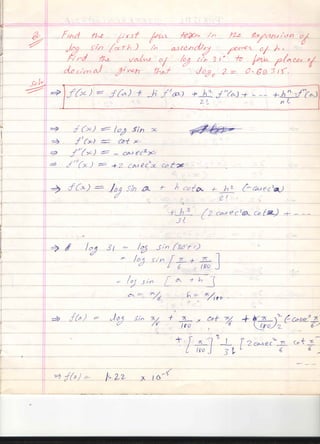 Q. Find the first four term in the expansion of
log sin (a+h) in ascending power of h.
Find the value of log sin 31° to four places of
decimal given that log₁₀ 2 = 0.60315.
Soln
⇒ f(x) = f(a) + h f'(a) + h²/2! f''(a) + - - - + hⁿ/n! fⁿ(a)
⇒ f(x) = log sin x
⇒ f'(x) = cot x
⇒ f''(x) = - cosec²x
⇒ f'''(x) = +2 cosec²x cotx
⇒ f(x) = log sin a + h cota + h²/2! (-cosec²a)
+ h³/3! (2 cosec²a cota) + - - -
⇒ log 31 = log sin (30+1)
= log sin [π/6 + π/180]
= log sin [a + h]
a = π/6 h = π/180
⇒ f(x) = log sin π/6 + π/180 × cot π/6 + (π/180)² /2 (-cosec² π/6
+ [π/180]³ 1/3! [2 cosec² π/6 cot π/6
⇒ f(x) = 1.22 × 10⁻⁵